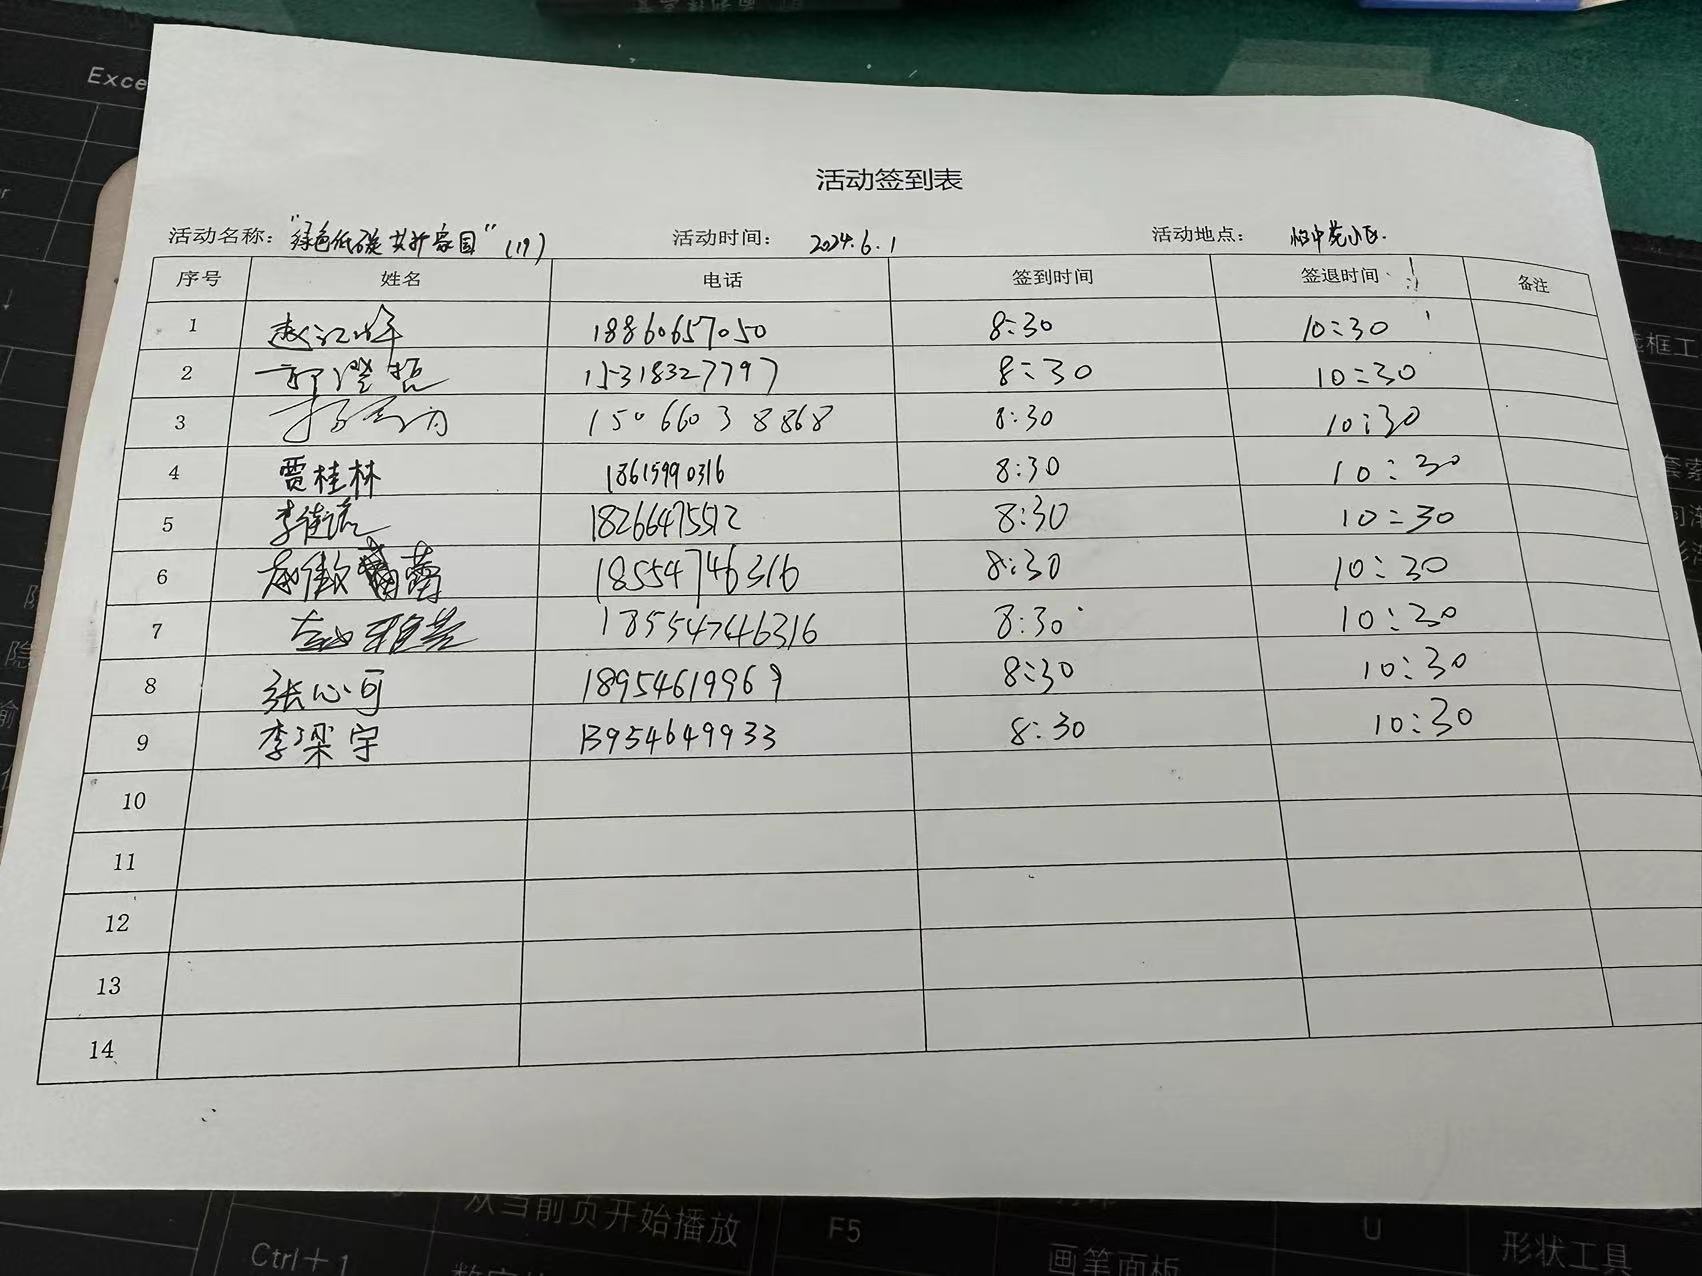 Exce
活动签到表
活动名称：“绿色低碳 共护家园”(19) 活动时间： 2024.6.1 活动地点： 小区.
序号 姓名 电话 签到时间 签退时间 备注
1 赵江峰 18860657050 8:30 10:30
2 15318327797 8:30 10:30
3 15066038868 8:30 10:30
4 贾桂林 18615990316 8:30 10:30
5 李 18266475512 8:30 10:30
6 18554746316 8:30 10:30
7 185547446316 8:30 10:30
8 张心可 18954619969 8:30 10:30
9 李梁宇 13954649933 8:30 10:30
10
11
12
13
14
从当前页开始播放 F5 U
Ctrl+1 画笔面板 形状工具